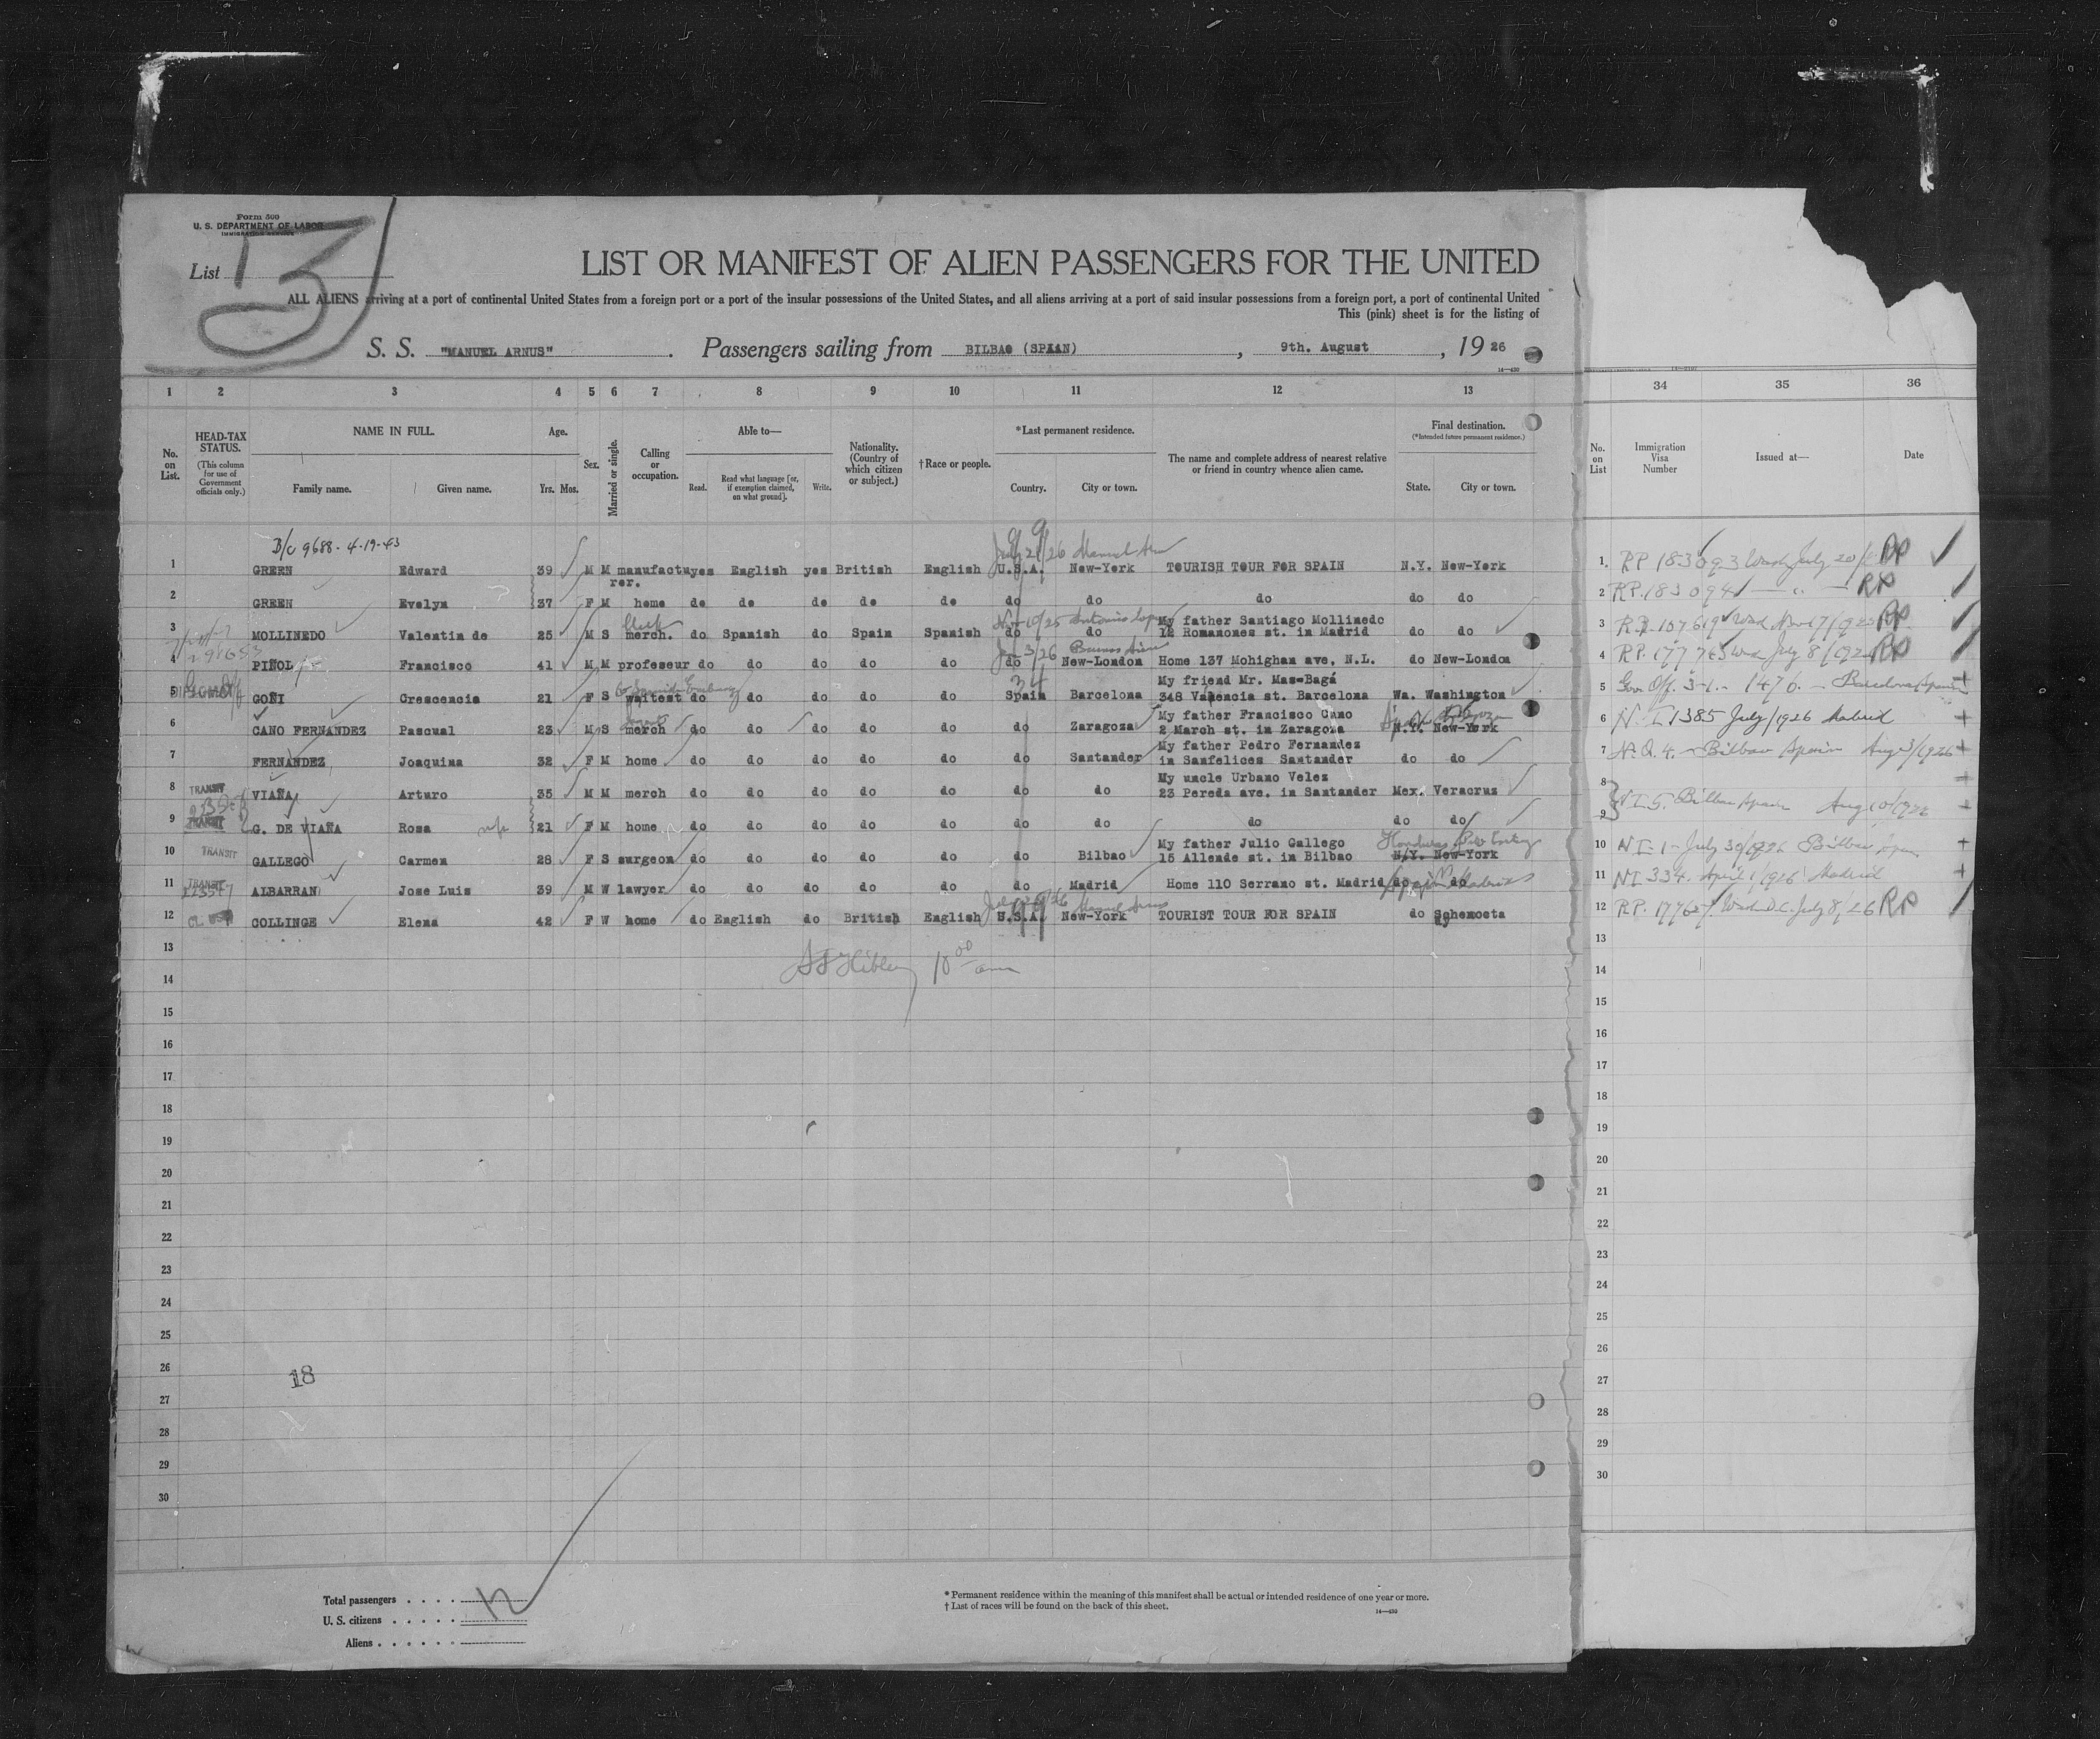 Form 500
U. S. DEPARTMENT OF LABOR
IMMIGRATION SERVICE
List 13
LIST OR MANIFEST OF ALIEN PASSENGERS FOR THE UNITED
ALL ALIENS arriving at a port of continental United States from a foreign port or a port of the insular possessions of the United States, and all aliens arriving at a port of said insular possessions from a foreign port, a port of continental United
This (pink) sheet is for the listing of
S. S. "MANUEL ARNUS" . Passengers sailing from BILBAO (SPAIN) , 9th. August , 19 26
14—430
1 2 3 4 5 6 7 8 9 10 11 12 13 34 35 36
No. on List. HEAD-TAX STATUS. (This column for use of Government officials only.) NAME IN FULL. Family name. Given name. Age. Yrs. Mos. Sex. Married or single. Calling or occupation. Able to— Read. Read what language [or, if exemption claimed, on what ground]. Write. Nationality. (Country of which citizen or subject.) †Race or people. *Last permanent residence. Country. City or town. The name and complete address of nearest relative or friend in country whence alien came. Final destination. (*Intended future permanent residence.) State. City or town.
No. on List Immigration Visa Number Issued at— Date
B/c 9688 - 4-19-43
July 21/26 Manuel
1 GREEN Edward 39 M M manufactu yes English yes British English U.S.A. New-York TOURISH TOUR FOR SPAIN N.Y. New-York 1. RP 183093 Wash July 20/ RP
rer.
2 GREEN Evelyn 37 F M home do do do do do do do do do do 2 R.P. 183094 RP
Clerk Nov 10/25 Antonio Lopez My father Santiago Mollinedo
3 MOLLINEDO Valentin de 25 M S merch. do Spanish do Spain Spanish do do 12 Romanones st. in Madrid do do 3 R.P. 107619 Wash Nov 7/1925 RP
Jan 3/26 Buenos Aires
4 PIÑOL Francisco 41 M M profeseur do do do do do do New-London Home 137 Mohighan ave. N.L. do New-London 4 R.P. 177765 Wash July 8/192 RP
DIPLOMAT to Spanish Embassy My friend Mr. Mas=Bagá
5 GOÑI Crescencia 21 F S waitest do do do do do Spain Barcelona 348 Valencia st. Barcelona Wa. Washington 5 Gov. Off. 3-1. - 1476. - Barcelona Spain
My father Francisco Cano
6 CANO FERNANDEZ Pascual 23 M S merch do do do do do do Zaragoza 2 March st. in Zaragoza N.Y. New-York 6 N-I 1385 July/1926 Madrid
My father Pedro Fernandez
7 FERNANDEZ Joaquina 32 F M home do do do do do do Santander in Sanfelices Santander do do 7 N.Q. 4. - Bilbao Spain Aug 3/1926
TRANSIT My uncle Urbano Velez
8 VIAÑA Arturo 35 M M merch do do do do do do do 23 Pereda ave. in Santander Mex. Veracruz 8
TRANSIT
9 G. DE VIAÑA Rosa 21 F M home do do do do do do do do do do 9 N I 5. Bilbao Spain Aug 10/1926
TRANSIT My father Julio Gallego Honduras
10 GALLEGO Carmen 28 F S surgeon do do do do do do Bilbao 15 Allende st. in Bilbao N.Y. New-York 10 N I - 1 - July 30/1926 Bilbao Spain
TRANSIT
11 ALBARRAN Jose Luis 39 M W lawyer do do do do do do Madrid Home 110 Serrano st. Madrid do do 11 N I 334. April 1/1926 Madrid
July 21/26 Manuel Arnus
12 COLLINGE Elena 42 F W home do English do British English U.S.A. New-York TOURIST TOUR FOR SPAIN do Schenecta 12 R.P. 177627 Wash D.C. July 8/26 RP
dy
13 13
10 00 am
14 14
15 15
16 16
17 17
18 18
19 19
20 20
21 21
22 22
23 23
24 24
25 25
26 26
18
27 27
28 28
29 29
30 30
Total passengers . . . . 12
U. S. citizens . . . . .
Aliens . . . . . . .
* Permanent residence within the meaning of this manifest shall be actual or intended residence of one year or more.
† List of races will be found on the back of this sheet.
14—430